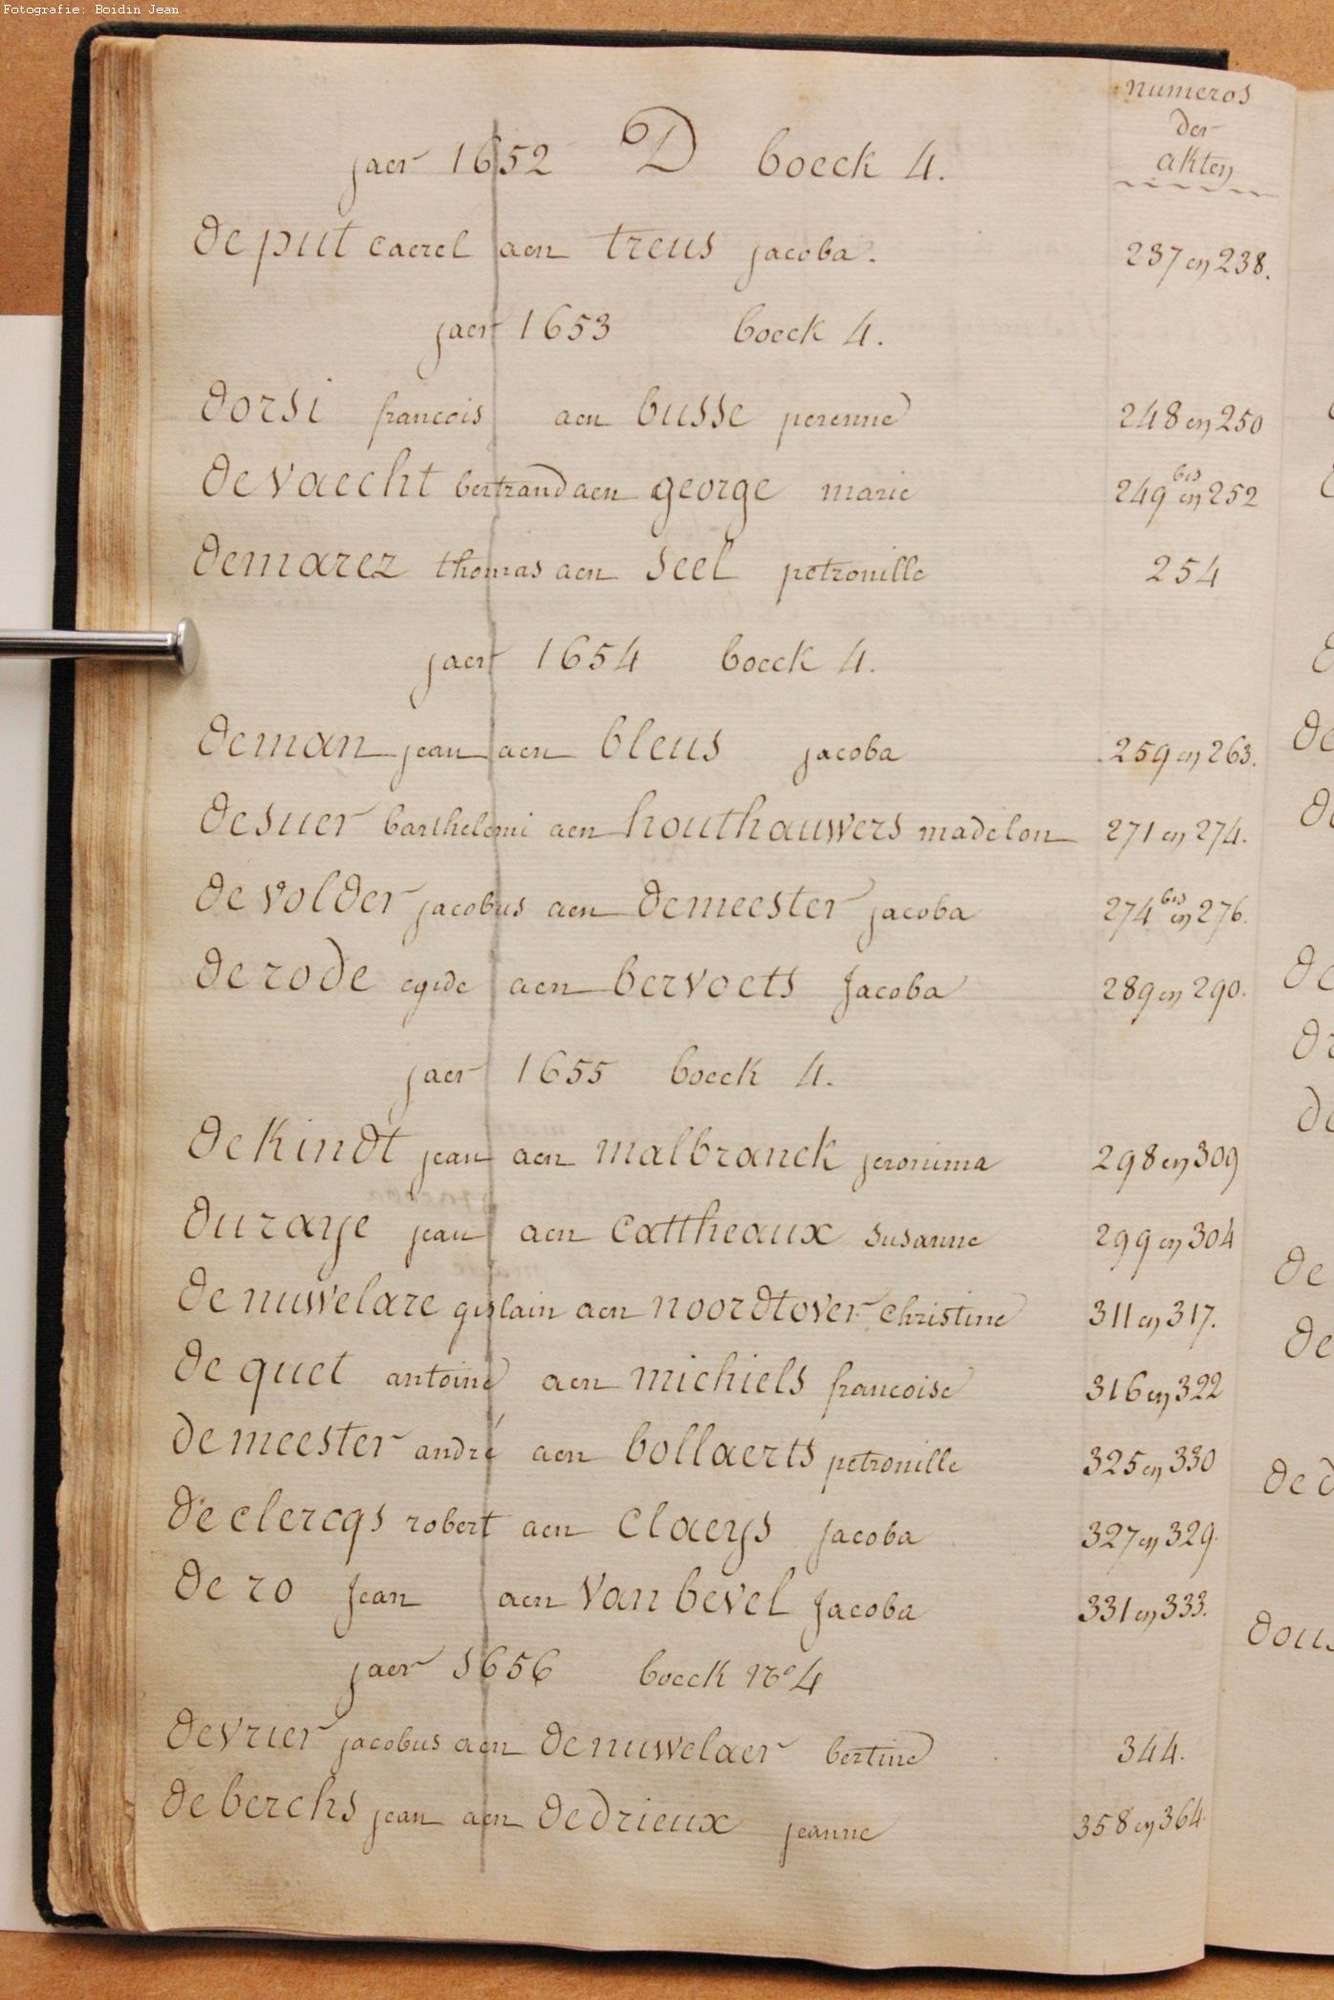 Fotografie: Boidin Jean
numeros
der
akten
jaer 1652 D boeck 4.
deput caerel aen treus jacoba. 237 en 238.
jaer 1653 boeck 4.
dorsi francois aen busse perenne 248 en 250
devaecht bertrand aen george marie 249 bis en 252
demarez thomas aen seel petronille 254
jaer 1654 boeck 4.
deman jean aen bleus jacoba 259 en 263.
desuer barthelemi aen houthauwers madelon 271 en 274.
devolder jacobus aen demeester jacoba 274 bis en 276.
derode egide aen bervoets Jacoba 289 en 290.
jaer 1655 boeck 4.
dekindt jean aen malbranck jeronima 298 en 309
duraye jean aen cattheaux susanne 299 en 304
denuwelare gislain aen noordtover christine 311 en 317.
dequet antoine aen michiels francoise 316 en 322
demeester andré aen bollaerts petronille 325 en 330
declercqs robert aen claeys Jacoba 327 en 329.
dero Jean aen van bevel Jacoba 331 en 333.
jaer 1656 boeck no 4
devrier jacobus aen denuwelaer bertine 344.
deberchs jean aen dedrieux jeanne 358 en 364.